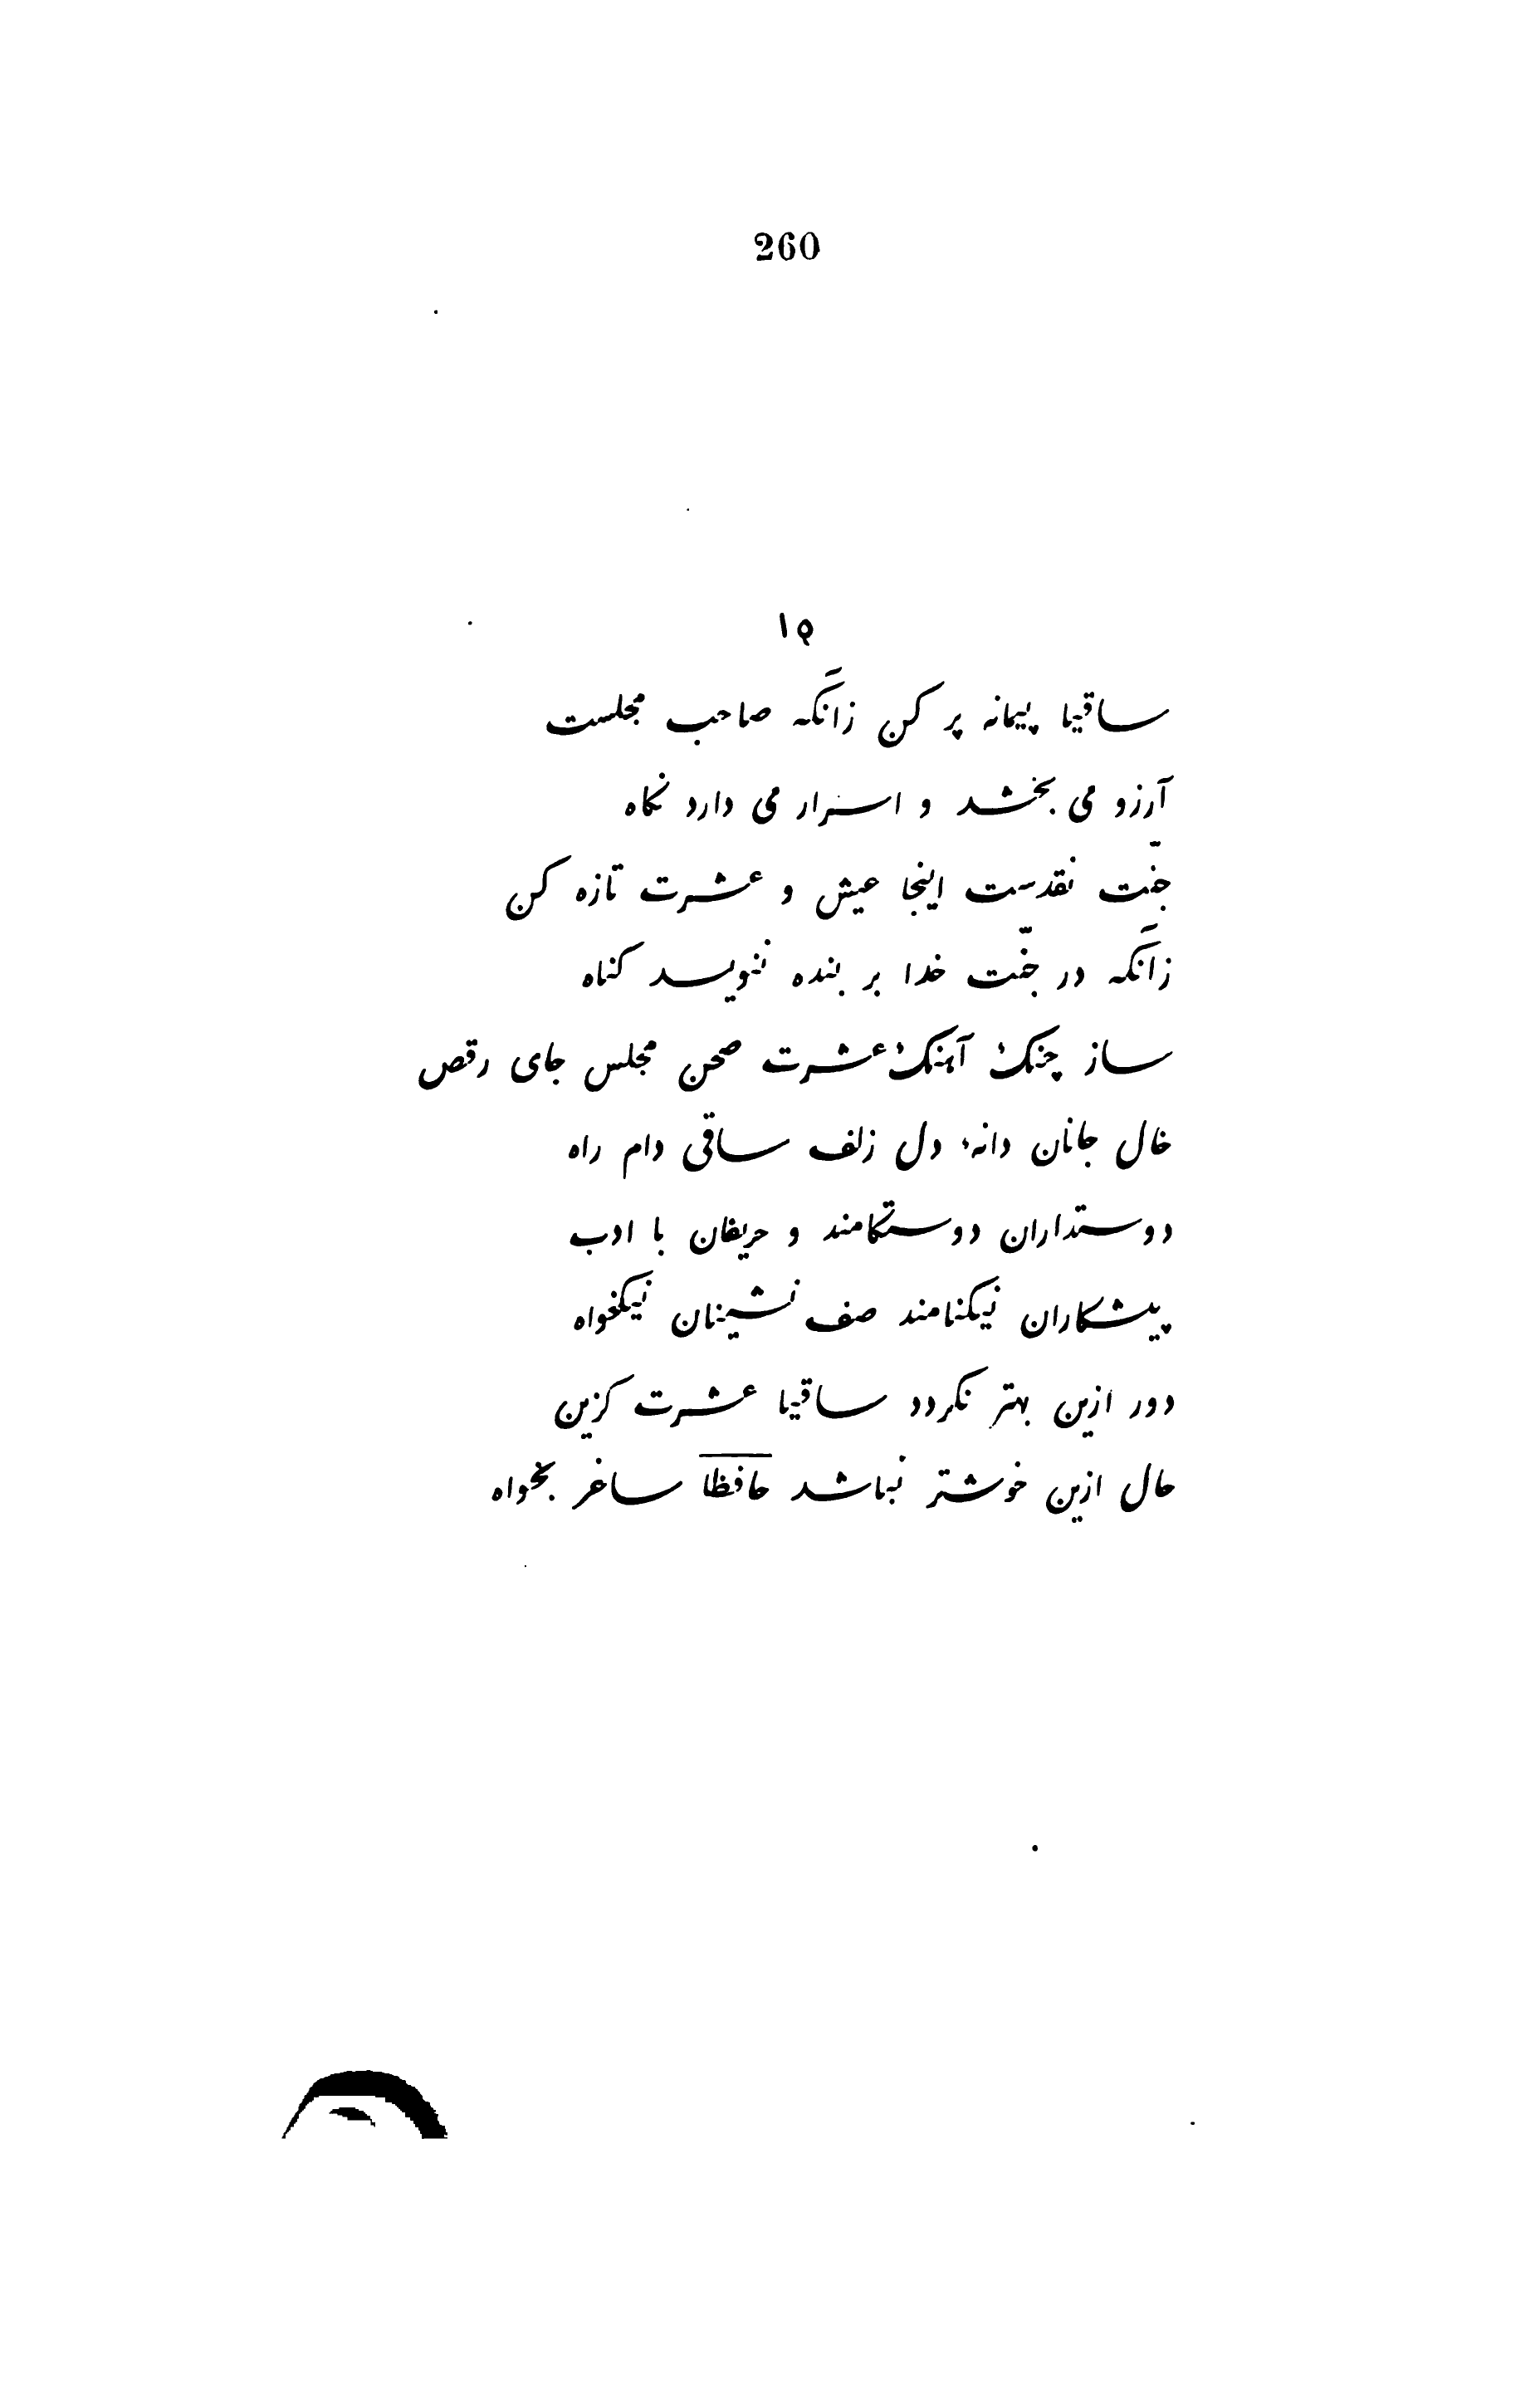 260
۱۵
ساقیا پیمانه پر کن زآنکه صاحب مجلست
آرزو می بخشد و اسرار می دارد نکاه
جنّت نقدست اینجا عیش و عشرت تازه کن
زآنکه در جنّت خدا بر بنده ننویسد کناه
ساز چنکْ آهنکْ عشرت صحن مجلس جای رقص
خال جانان دانهٔ دل زلف ساقی دام راه
دوستداران دوستکامند و حریفان با ادب
پیشکاران نیکنامند صف نشینان نیکخواه
دور ازین بهتر نکردد ساقیا عشرت کزین
حال ازین خوشتر نباشد حافظا ساغر بخواه